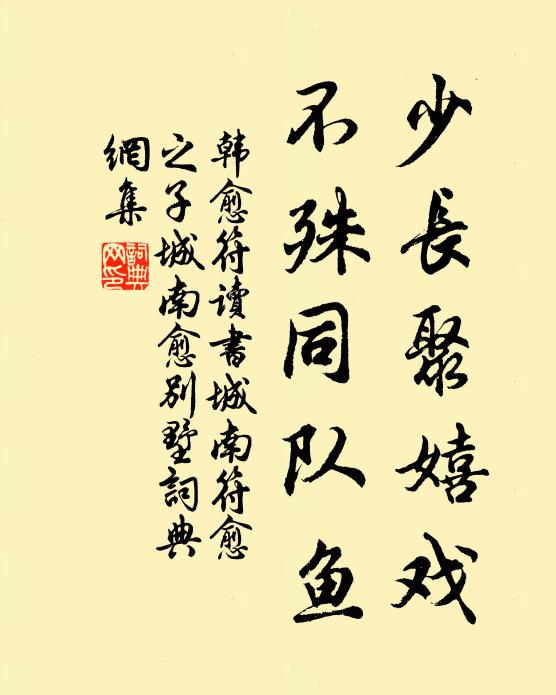 少長聚嬉戏
不殊同队鱼
韩愈符讀書城南符愈
之子城南愈别墅詞典
網集
詞典網印